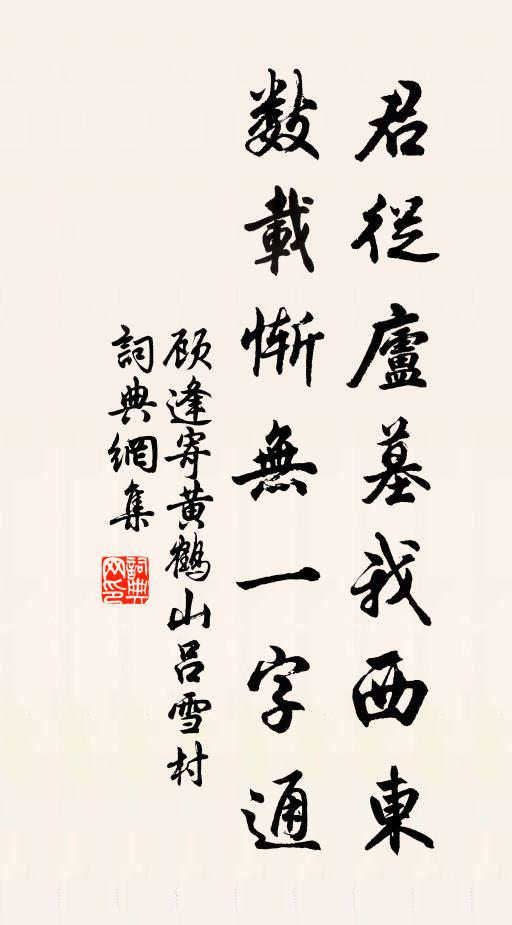 君從廬墓我西東
數載慚無一字通
顾逢寄黄鶴山呂雪村
詞典網集
詞典网印